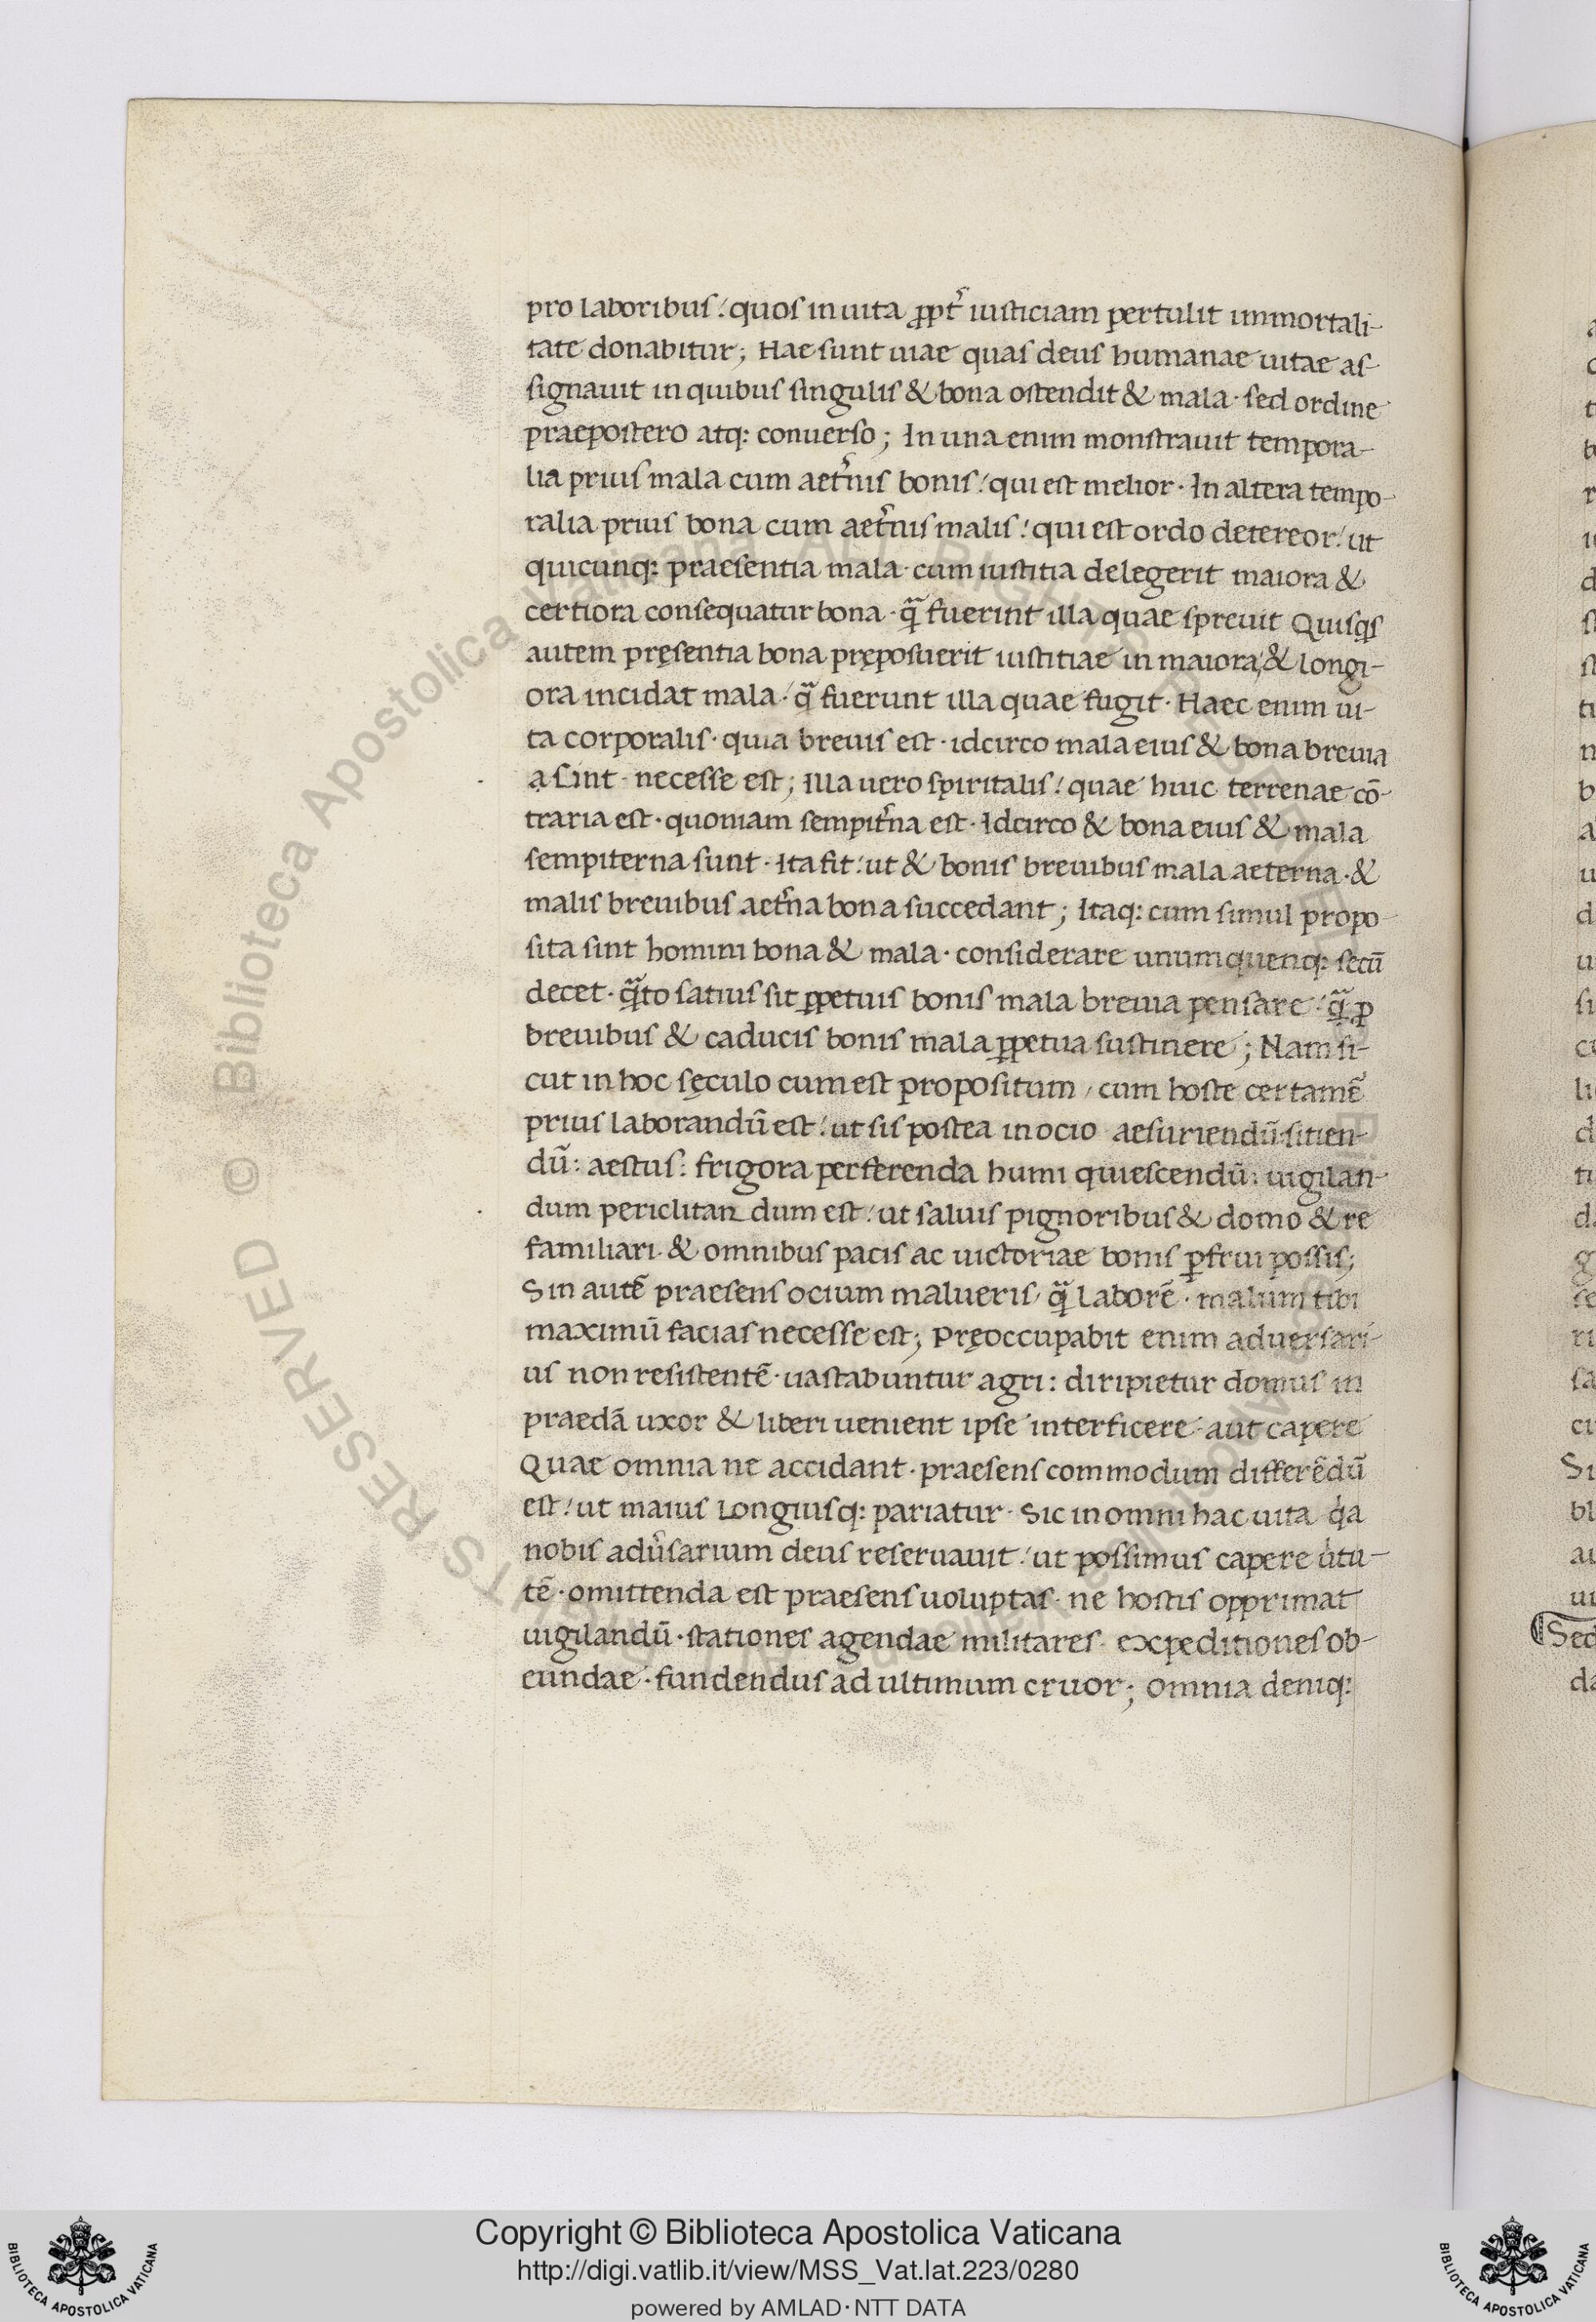 pro laboribus! quos in uita ꝓpt᷑ iusticiam pertulit immortali-
tate donabitur; Hae sunt uiae quas deus humanae uitae as-
signauit in quibus singulis & bona ostendit & mala· sed ordine
praepostero atq: conuerso; In una enim monstrauit tempora-
lia prius mala cum aet᷑nis bonis! qui est melior· In altera tempo-
ralia prius bona cum aet᷑nis malis! qui est ordo detereor! ut
quicunq: praesentia mala· cum iustitia delegerit maiora &
certiora consequatur bona· q̃ fuerint illa quae spreuit Quisqs
autem pręsentia bona pręposuerit iustitiae in maiora, & longi-
ora incidat mala· q̃ fuerunt illa quae fugit· Haec enim ui-
ta corporalis· quia breuis est· idcirco mala eius & bona breuia
ạ sint· necesse est; Illa uero spiritalis! quae huic terrenae cō-
traria est· quoniam sempit᷑na est· Idcirco & bona eius & mala
sempiterna sunt· Ita fit! ut & bonis breuibus mala aeterna· &
malis breuibus aet᷑na bona succedant; Itaq: cum simul propo-
sita sint homini bona & mala· considerare unumquenq: secū
decet· q̃to satius sit ꝑpetuis bonis mala breuia pensare! q̃ ꝓ
breuibus & caducis bonis mala ꝑpetua sustinere; Nam si-
cut in hoc sęculo cum est propositum, cum hoste certamē
prius laborandū est! ut sis postea in ocio aesuriendū: sitien-
dū: aestus: frigora perferenda humi quiescendū: uigilan-
dum periclitan dum est! ut saluis pignoribus & domo & re
familiari· & omnibus pacis ac uictoriae bonis ꝑfrui possis;
Sin autē praesens ocium malueris, q̃ laborē· malum tibi
maximū facias necesse est; Pręoccupabit enim aduersari-
us non resistentē· uastabuntur agri: diripietur domus in
praedā uxor & liberi uenient ipse interficere· aut capere
Quae omnia ne accidant· praesens commodum differēdū
est! ut maius longiusq: pariatur· Sic in omni hac uita q̇a
nobis adu᷑sarium deus reseruauit! ut possimus capere u̇tu-
tē· omittenda est praesens uoluptas· ne hostis opprimat
uigilandū· stationes agendae militares· expeditiones ob-
eundae· fundendus ad ultimum cruor; omnia deniq:
Copyright © Biblioteca Apostolica Vaticana
http://digi.vatlib.it/view/MSS_Vat.lat.223/0280
powered by AMLAD·NTT DATA